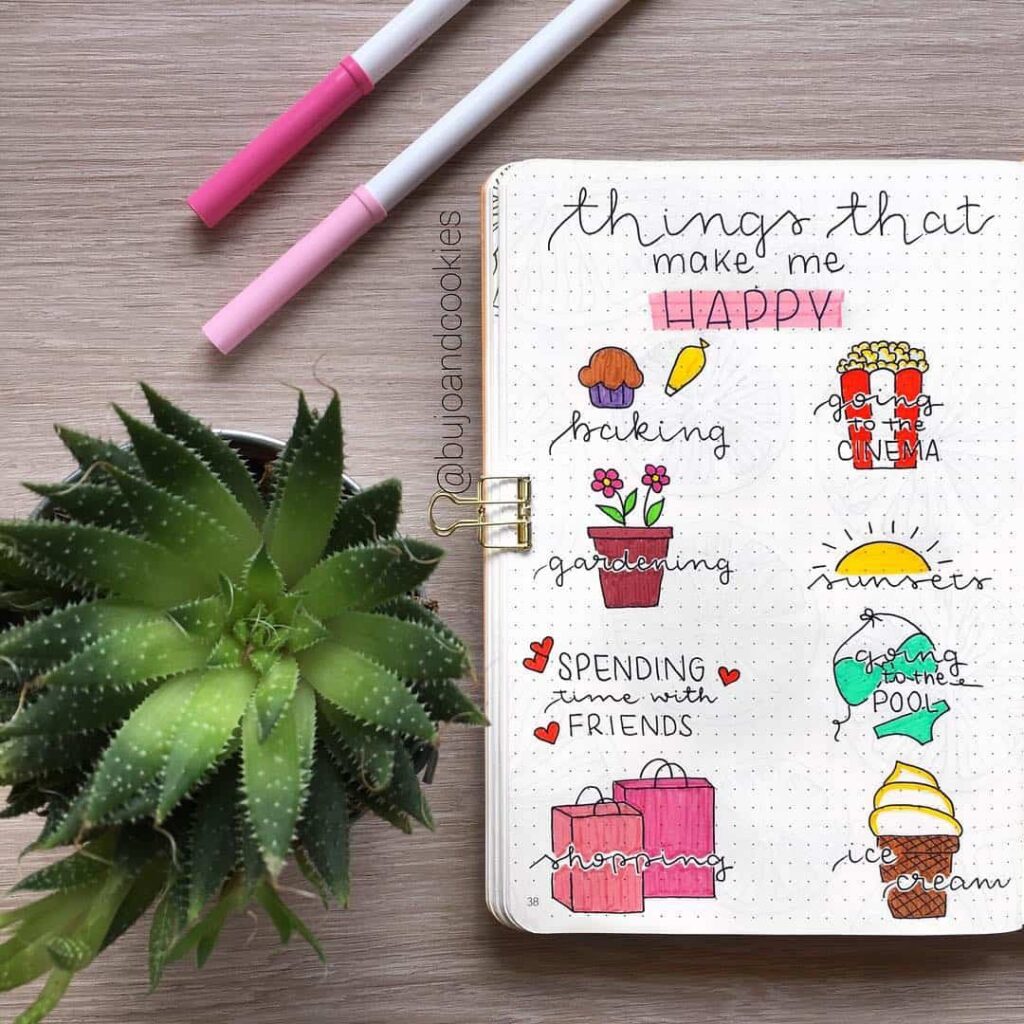 @bujoandcookies
things that
make me
HAPPY
baking
going
to the
CINEMA
gardening
sunsets
SPENDING
time with
FRIENDS
going
to the
POOL
shopping
ice
cream
38